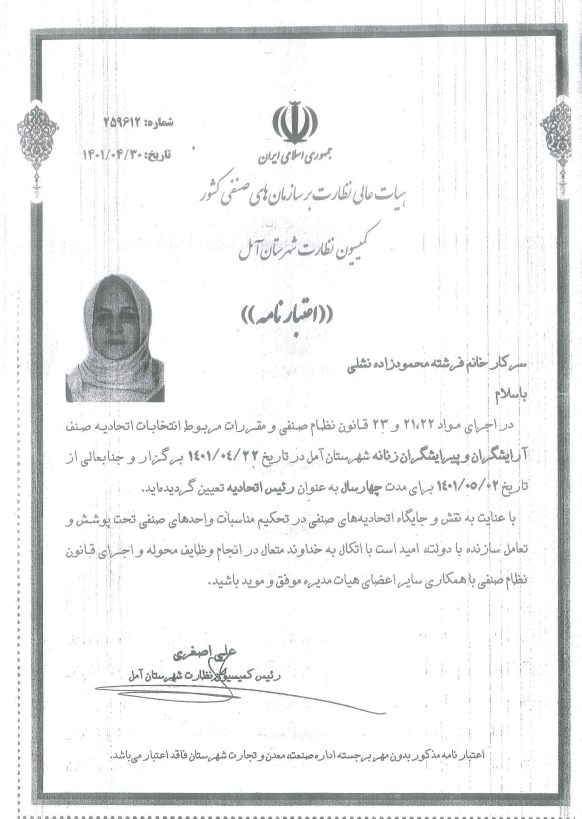 شماره: ۲۵۹۶۱۲
تاریخ: ۱۴۰۱/۰۴/۳۰
جمهوری اسلامی ایران
هیات عالی نظارت بر سازمان های صنفی کشور
کمیسیون نظارت شهرستان آمل
((اعتبار نامه))
سرکار خانم فرشته محمودزاده نشلی
باسلام
در اجرای مواد ۲۱،۲۲ و ۲۳ قانون نظام صنفی و مقررات مربوط انتخابات اتحادیه صنف
آرایشگران و پیرایشگران زنانه شهرستان آمل در تاریخ ۱۴۰۱/۰۴/۲۲ برگزار و جنابعالی از
تاریخ ۱۴۰۱/۰۵/۰۲ برای مدت چهارسال به عنوان رئیس اتحادیه تعیین گردیده‌اید.
با عنایت به نقش و جایگاه اتحادیه‌های صنفی در تحکیم مناسبات واحدهای صنفی تحت پوشش و
تعامل سازنده با دولت، امید است با اتکال به خداوند متعال در انجام وظایف محوله و اجرای قانون
نظام صنفی با همکاری سایر اعضای هیات مدیره موفق و موید باشید.
علی اصغری
رئیس کمیسیون نظارت شهرستان آمل
اعتبار نامه مذکور بدون مهر برجسته اداره صنعت، معدن و تجارت شهرستان فاقد اعتبار می‌باشد.